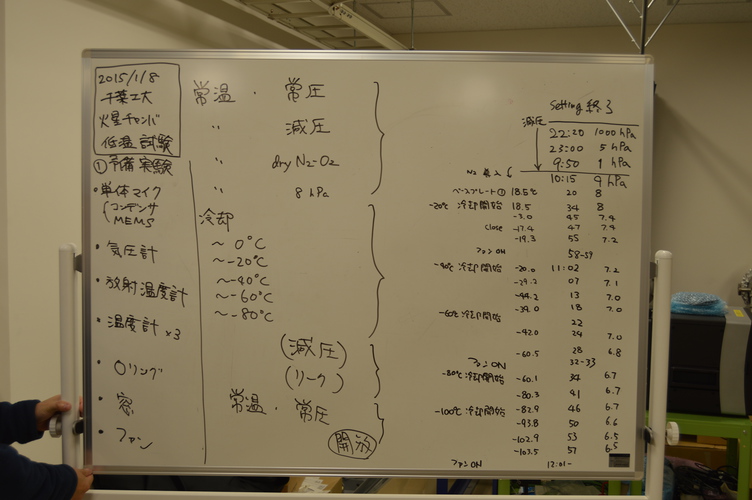 2015/1/8
千葉工大
火星チャンバ
低温試験
①予備実験
・単体マイク
(コンデンサ
MEMS
・気圧計
・放射温度計
・温度計 x3
・Oリング
・窓
・ファン
常温・常圧
〃 減圧
〃 dry N2-O2
〃 8 hPa
冷却
~ 0℃
~-20℃
~-40℃
~-60℃
~-80℃
(減圧)
(リーク)
常温・常圧
開放
Setting 終了
減圧 22:20 1000 hPa
23:00 5 hPa
9:50 1 hPa
N2 10:15 9 hPa
ベースプレート① 18.5℃ 20 8
-20℃ 冷却開始 18.5 34 8
-3.0 45 7.4
close -17.4 47 7.4
-19.3 55 7.2
ファンON 58-59
-40℃ 冷却開始 -20.0 11:02 7.2
-29.2 07 7.1
-44.2 13 7.0
-39.0 18 7.0
-60℃ 冷却開始 22
-42.0 24 7.0
-60.5 28 6.8
ファンON 32-33
-80℃ 冷却開始 -60.1 34 6.7
-80.3 41 6.7
-100℃ 冷却開始 -82.9 46 6.7
-93.8 50 6.6
-102.9 53 6.5
-103.5 57 6.5
ファンON 12:01-